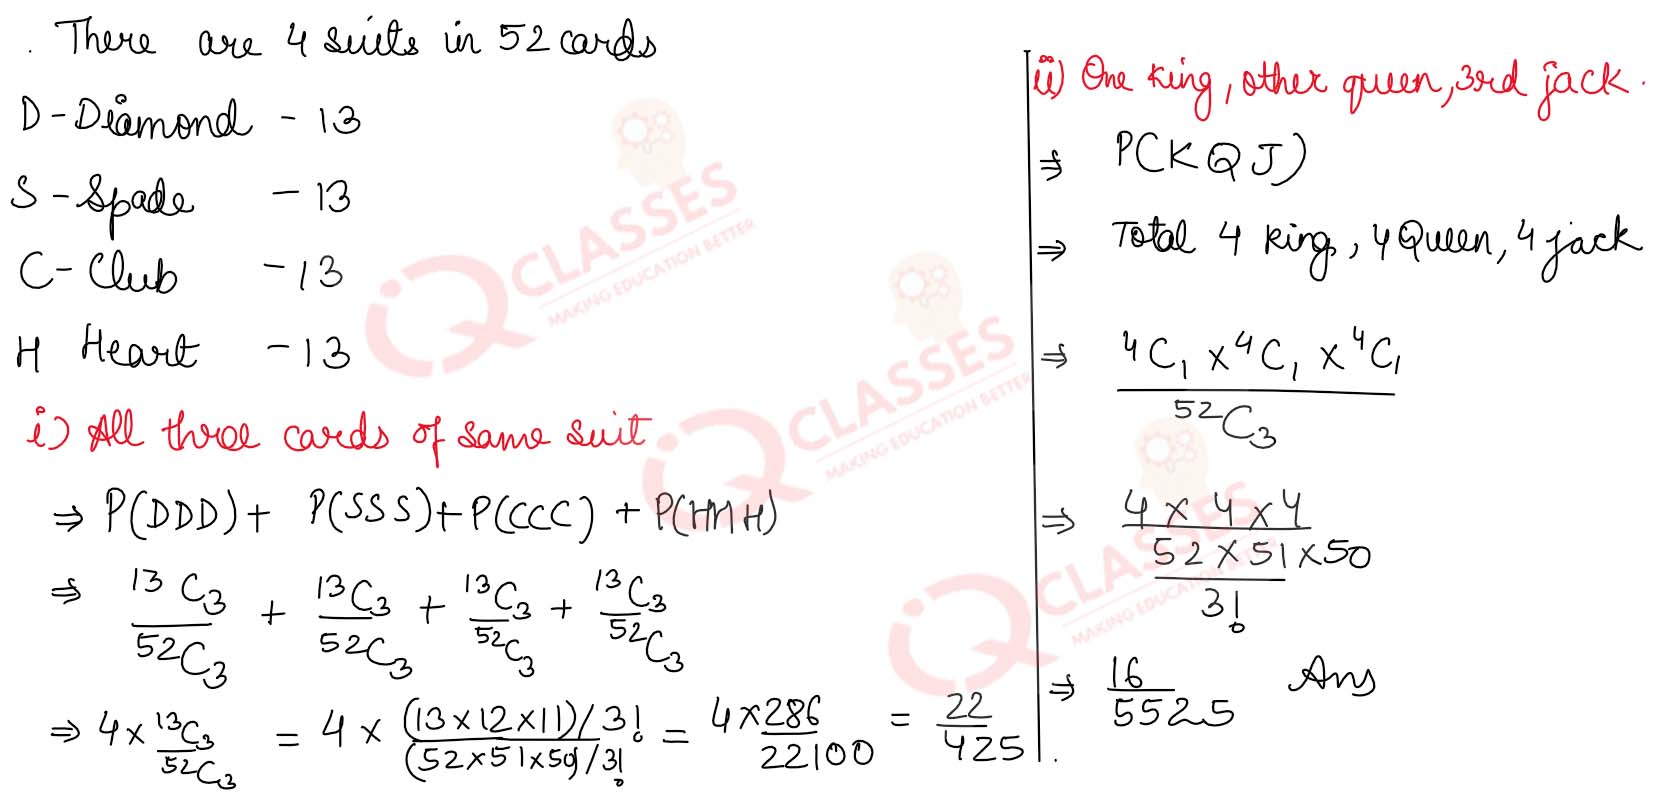 . There are 4 suits in 52 cards
D - Diamond - 13
S - Spade - 13
C - Club - 13
H Heart - 13
i) All three cards of same suit
⇒ P(DDD) + P(SSS) + P(CCC) + P(HHH)
⇒ ¹³C₃/⁵²C₃ + ¹³C₃/⁵²C₃ + ¹³C₃/⁵²C₃ + ¹³C₃/⁵²C₃
⇒ 4 × ¹³C₃/⁵²C₃ = 4 × (13×12×11)/3! / (52×51×50)/3! = 4×286/22100 = 22/425
ii) One king, other queen, 3rd jack.
⇒ P(KQJ)
⇒ Total 4 king, 4 Queen, 4 jack
⇒ ⁴C₁ × ⁴C₁ × ⁴C₁
⁵²C₃
⇒ 4 × 4 × 4
52 × 51 × 50
3!
⇒ 16/5525 Ans
iQ CLASSES
MAKING EDUCATION BETTER
iQ CLASSES
MAKING EDUCATION BETTER
iQ CLASSES
MAKING EDUCATION BETTER